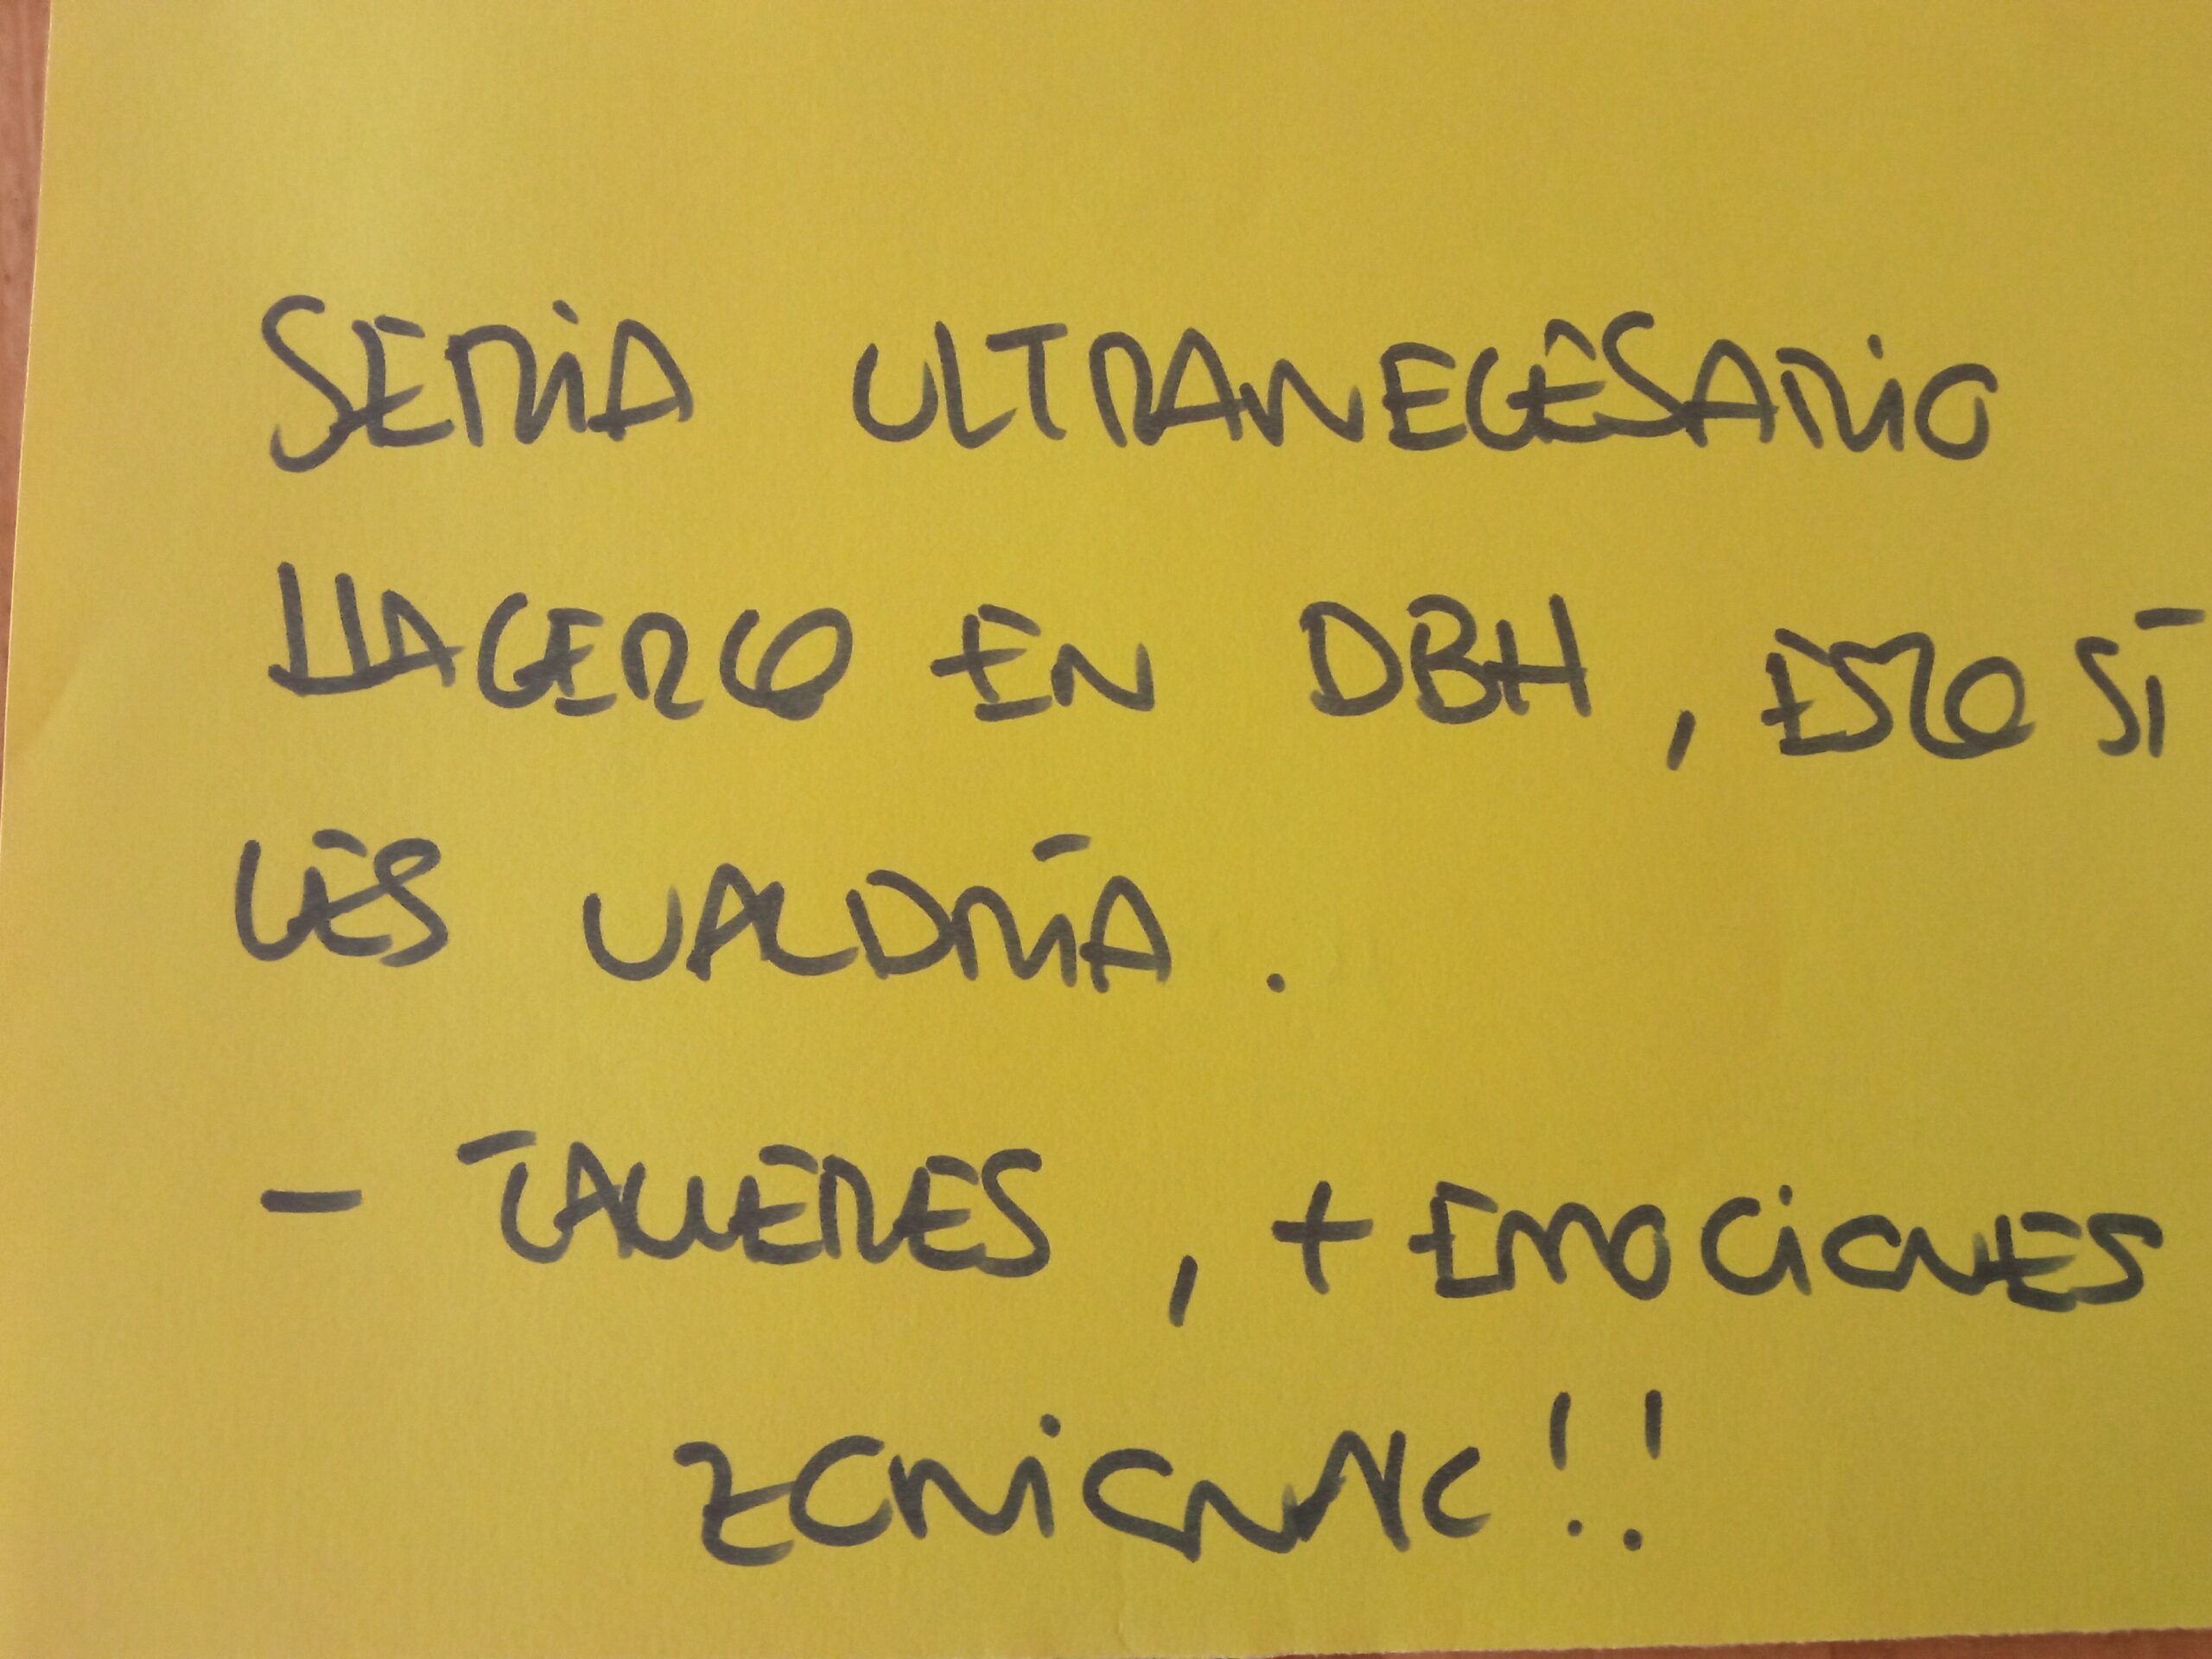 SERIA ULTRANECESARIO
HACERLO EN DBH, ESTO SÍ
LES VALDRÍA.
- TALLERES, + EMOCIONES
ZORIONAK!!